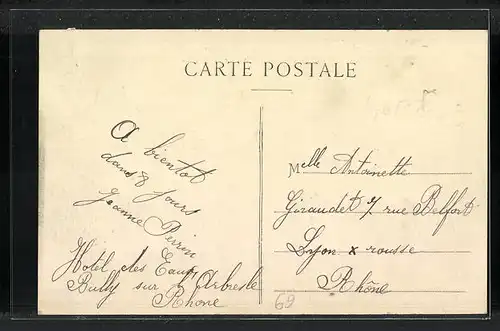 CARTE POSTALE
A bientot
dans 8 jours
Jeanne Perrin
Hotel des Eaux
Bully sur l'Arbresle
Rhone
Melle Antoinette
Giraudet 7 rue Belfort
Lyon x rousse
Rhône
69